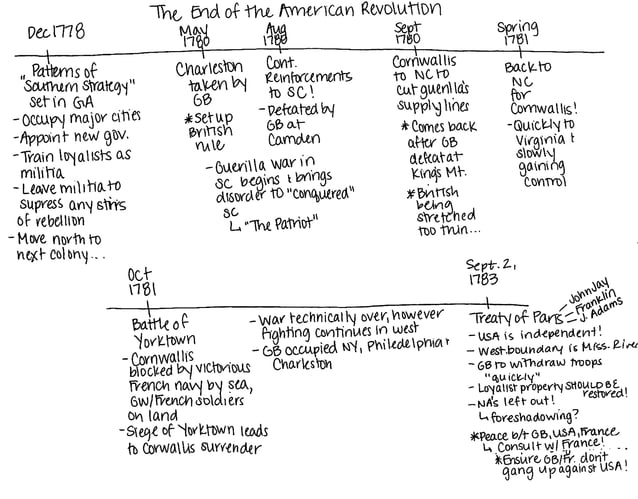 The End of the American Revolution
Dec 1778
Patterns of
"Southern Strategy"
set in GA
- Occupy major cities
- Appoint new gov.
- Train loyalists as
militia
- Leave militia to
supress any stirs
of rebellion
- Move north to
next colony...
May
1780
Charleston
taken by
GB
* Set up
British
rule
Aug
1780
Cont.
Reinforcements
to SC!
- Defeated by
GB at
Camden
- Guerilla war in
SC begins & brings
disorder to "conquered"
SC
↳ "The Patriot"
Sept
1780
Cornwallis
to NC to
cut guerilla's
supply lines
* Comes back
after GB
defeat at
Kings Mt.
* British
being
stretched
too thin...
Spring
1781
Back to
NC
for
Cornwallis!
- Quickly to
Virginia &
slowly
gaining
control
Oct
1781
Battle of
Yorktown
- Cornwallis
blocked by victorious
French navy by sea,
GW/French soldiers
on land
- Siege of Yorktown leads
to Corwallis surrender
- War technically over, however
fighting continues in west
- GB occupied NY, Philedelphia &
Charleston
Sept. 2,
1783
Treaty of Paris
John Jay
Franklin
J. Adams
- USA is independent!
- West. boundary is Miss. River
- GB to withdraw troops
"quickly"
- Loyalist property SHOULD BE
restored!
- NA's left out!
↳ foreshadowing?
* Peace b/t GB, USA, France
↳ Consult w/ France!
* Ensure GB/Fr. don't
gang up against USA!